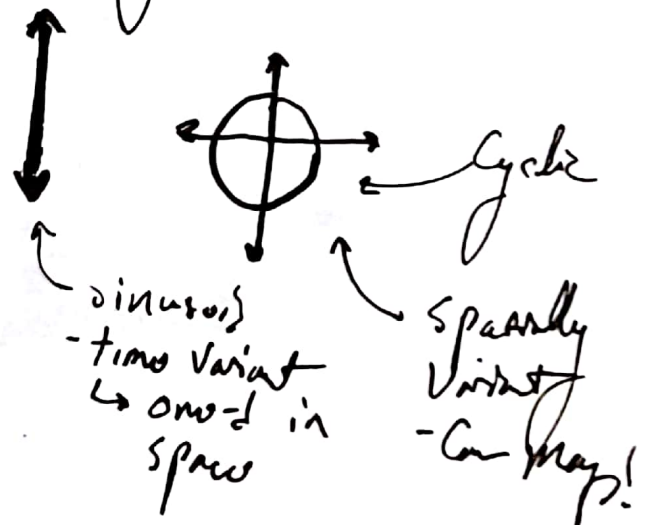 Cyclic
sinusoid
- time variant
↳ one-d in
space
Spatially
Variant
- Can map!